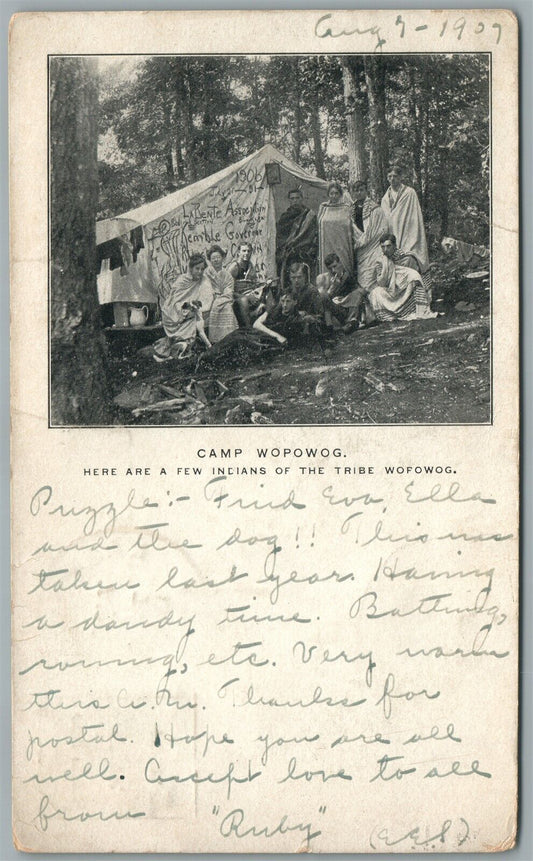 Aug 7 - 1907
1906
La Bente Association
Governor
CAMP WOPOWOG.
HERE ARE A FEW INDIANS OF THE TRIBE WOFOWOG.
Puzzle:- Find Eva, Ella
and the dog!! This was
taken last year. Having
a dandy time. Batting,
rowing, etc. Very warm
this A.M. Thanks for
postal. Hope you are all
well. Accept love to all
from "Ruby"